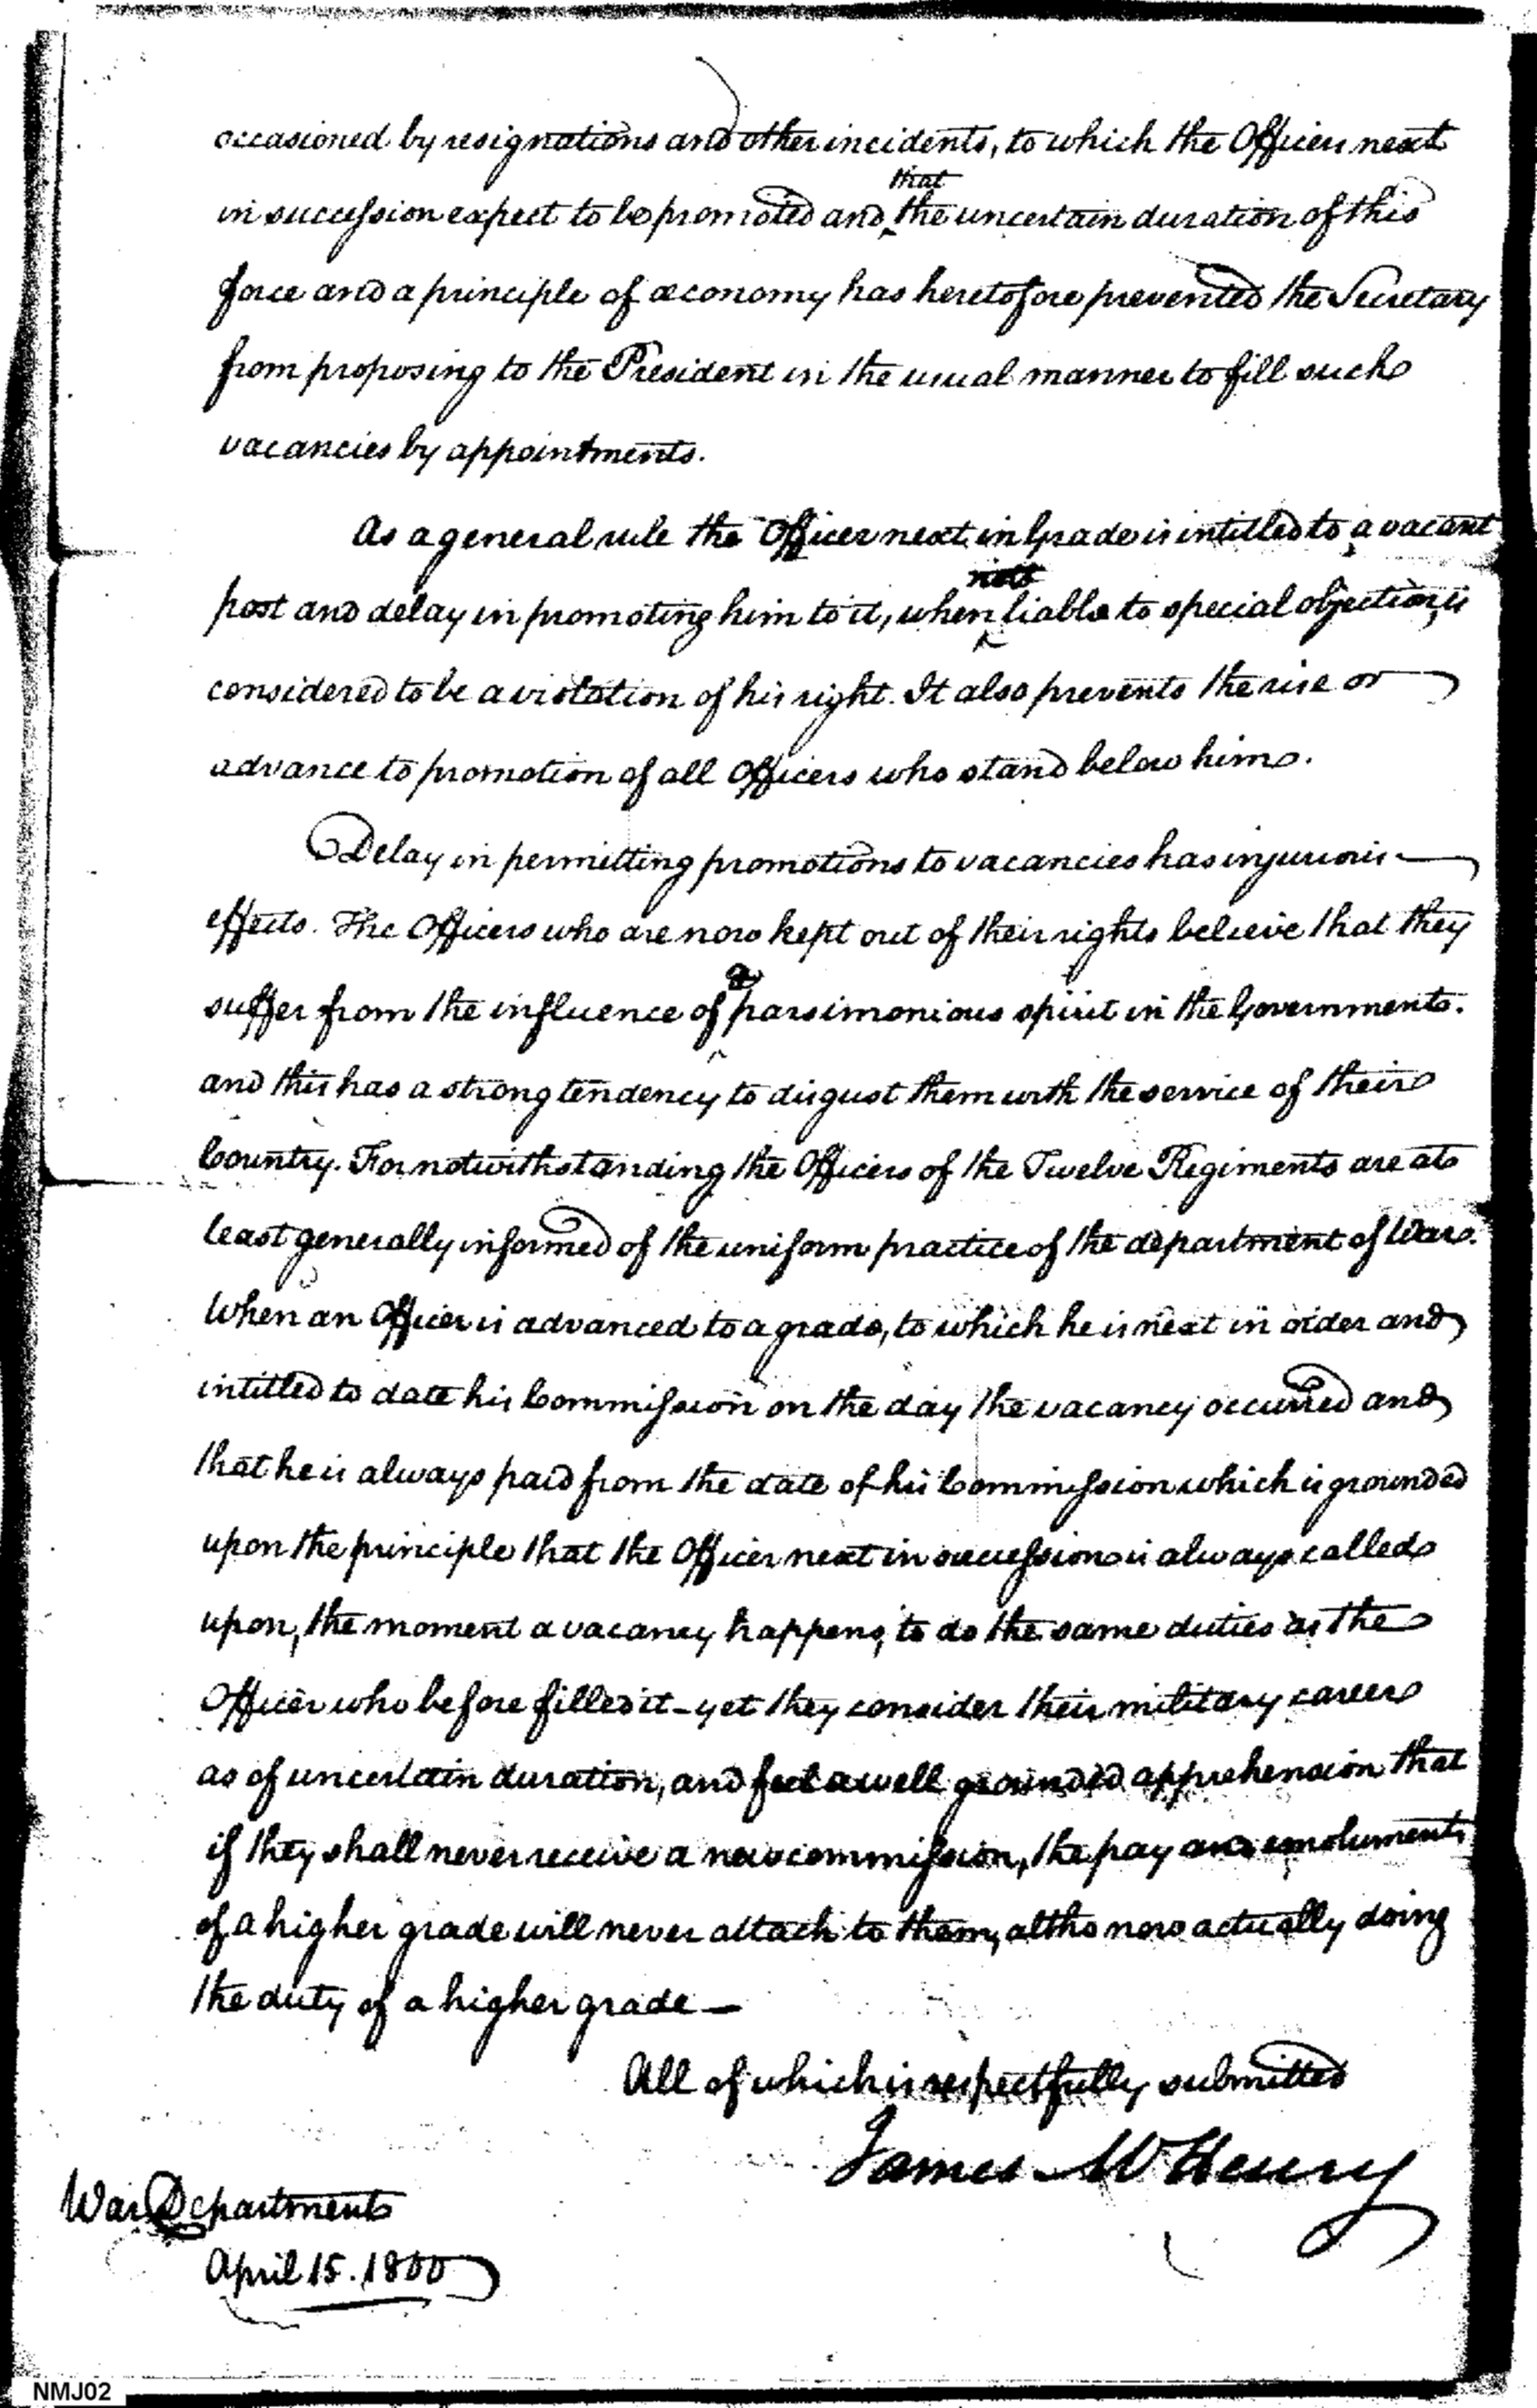 occasioned by resignations and other incidents, to which the Officers next
that
in succession expect to be promoted and the uncertain duration of this
force and a principle of œconomy has heretofore prevented the Secretary
from proposing to the President in the usual manner to fill such
vacancies by appointments.
As a general rule the Officer next in Grade is intitled to a vacant
not
post and delay in promoting him to it, when liable to special objection, is
considered to be a violation of his right. It also prevents the rise or
advance to promotion of all Officers who stand below him.
Delay in permitting promotions to vacancies has injurious
effects. The Officers who are now kept out of their rights believe that they
a
suffer from the influence of parsimonious spirit in the Government.
and this has a strong tendency to disgust them with the service of their
Country. For notwithstanding the Officers of the Twelve Regiments are at
least generally informed of the uniform practice of the department of War.
When an Officer is advanced to a grade, to which he is next in order and
intitled to date his Commission on the day the vacancy occurred and
that he is always paid from the date of his Commission which is grounded
upon the principle that the Officer next in succession is always called
upon, the moment a vacancy happens, to do the same duties as the
Officer who before filled it - yet they consider their military career
as of uncertain duration, and feel a well grounded apprehension that
if they shall never receive a new commission, the pay and emoluments
of a higher grade will never attach to them, altho now actually doing
the duty of a higher grade —
All of which is respectfully submitted
James McHenry
War Department
April 15. 1800
NMJ02